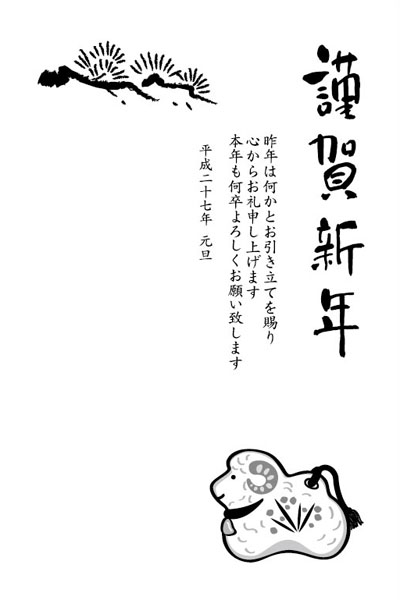 謹賀新年
昨年は何かとお引き立てを賜り
心からお礼申し上げます
本年も何卒よろしくお願い致します
平成二十七年 元旦